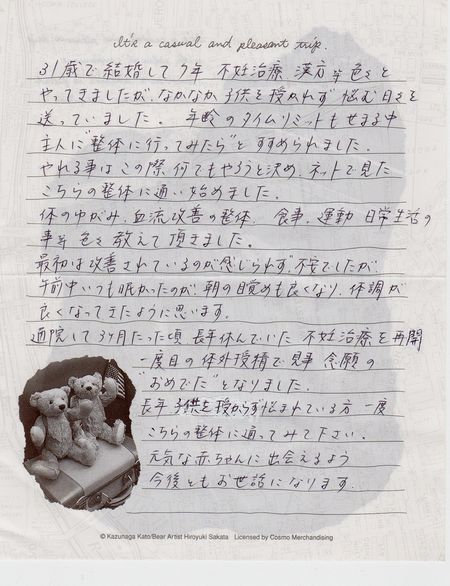 It's a casual and pleasant trip.
31歳で結婚して7年 不妊治療、漢方等色々と
やってきましたが、なかなか子供を授かれず 悩む日々を
送っていました。 年齢のタイムリミットもせまる中
主人に"整体に行ってみたら"と すすめられました。
やれる事はこの際、何でもやろうと決め、ネットで見た
こちらの整体に通い始めました。
体のゆがみ、血流改善の整体、食事、運動、日常生活の
事等 色々教えて頂きました。
最初は改善されているのが感じられず、不安でしたが、
午前中いつも眠かったのが 朝の目覚めも良くなり、体調が
良くなってきたように思います。
通院して3ヶ月たった頃 長年休んでいた 不妊治療を再開
一度目の体外授精で見事 念願の
"おめでた"となりました。
長年 子供を授からず悩まれている方 一度
こちらの整体に通ってみて下さい。
元気な赤ちゃんに出会えるよう
今後ともお世話になります。
© Kazunaga Kato/Bear Artist Hiroyuki Sakata Licensed by Cosmo Merchandising